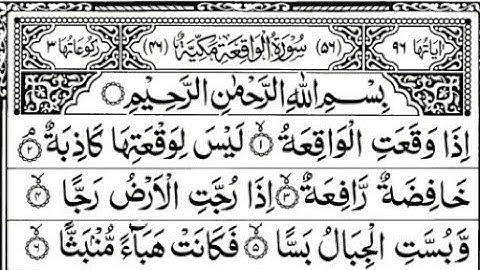 اٰیَاتُهَا ۹۶ (۵۶) سُوْرَةُ الْوَاقِعَةِ مَكِّیَّةٌ (۴۶) رُكُوْعَاتُهَا ۳
بِسْمِ اللّٰهِ الرَّحْمٰنِ الرَّحِیْمِ
اِذَا وَقَعَتِ الْوَاقِعَةُ ۙ۝۱ لَیْسَ لِوَقْعَتِهَا كَاذِبَةٌ ۘ۝۲
خَافِضَةٌ رَّافِعَةٌ ۙ۝۳ اِذَا رُجَّتِ الْاَرْضُ رَجًّا ۙ۝۴
وَّ بُسَّتِ الْجِبَالُ بَسًّا ۙ۝۵ فَكَانَتْ هَبَآءً مُّنْۢبَثًّا ۙ۝۶